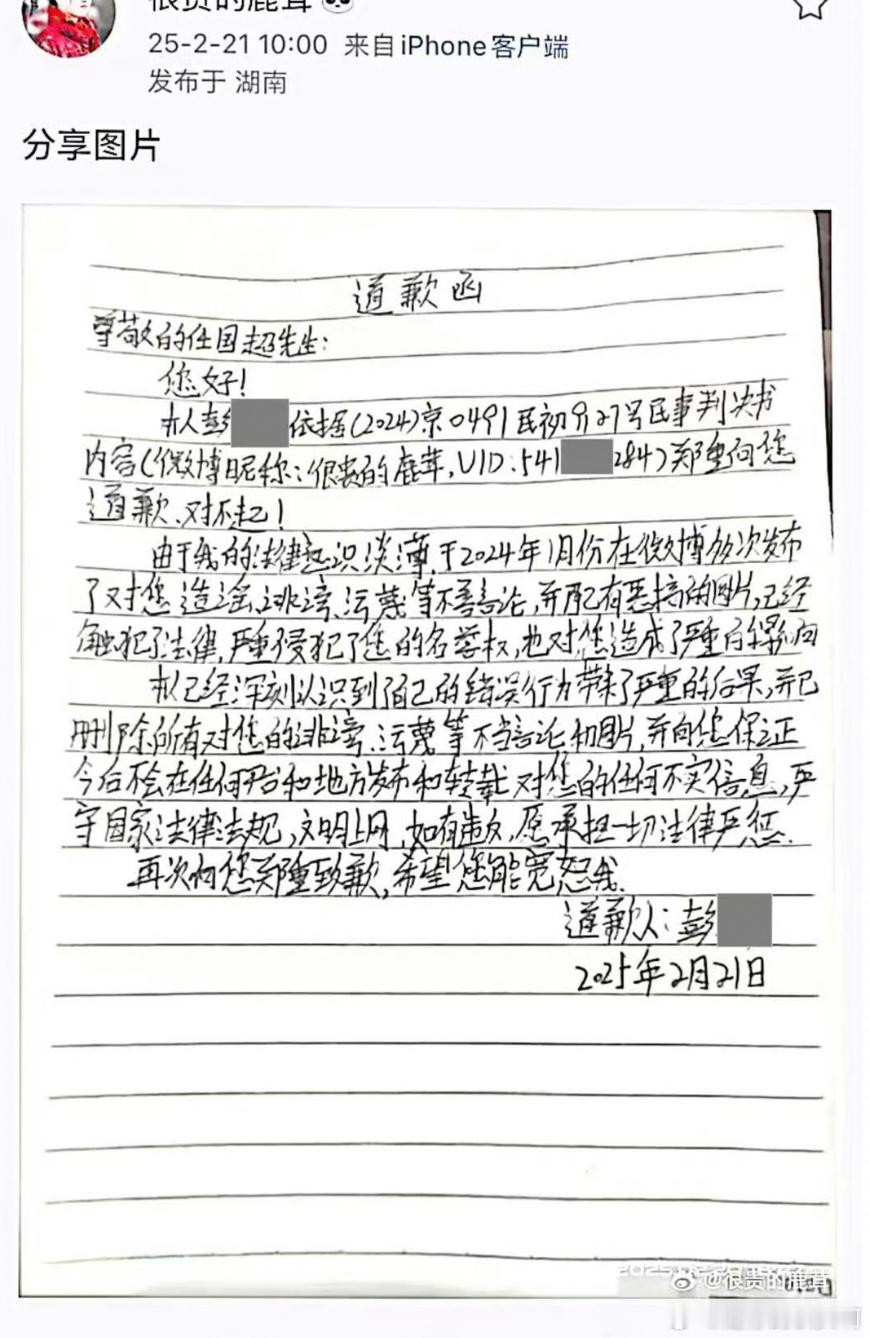 很贵的鹿茸
25-2-21 10:00 来自 iPhone客户端
发布于 湖南
分享图片
道歉函
尊敬的任国超先生:
您好!
本人彭 依据(2024)京0491民初9127号民事判决书
内容(微博昵称:很贵的鹿茸,UID:541 284)郑重向您
道歉、对不起!
由于我的法律意识淡薄,于2024年1月份在微博多次发布
了对您造谣、诽谤、污蔑等不善言论,并配有恶搞的图片,已经
触犯了法律,严重侵犯了您的名誉权,也对您造成了严重的影响
本人已经深刻认识到了自己的错误行为带来了严重的后果,并已
删除所有对您的诽谤、污蔑等不当言论和图片,并向您保证
今后不会在任何平台和地方发布和转载对您的任何不实信息,严
守国家法律法规,文明上网,如有违反,愿承担一切法律严惩.
再次向您郑重致歉,希望您能宽恕我.
道歉人:彭
2025年2月21日
@很贵的鹿茸